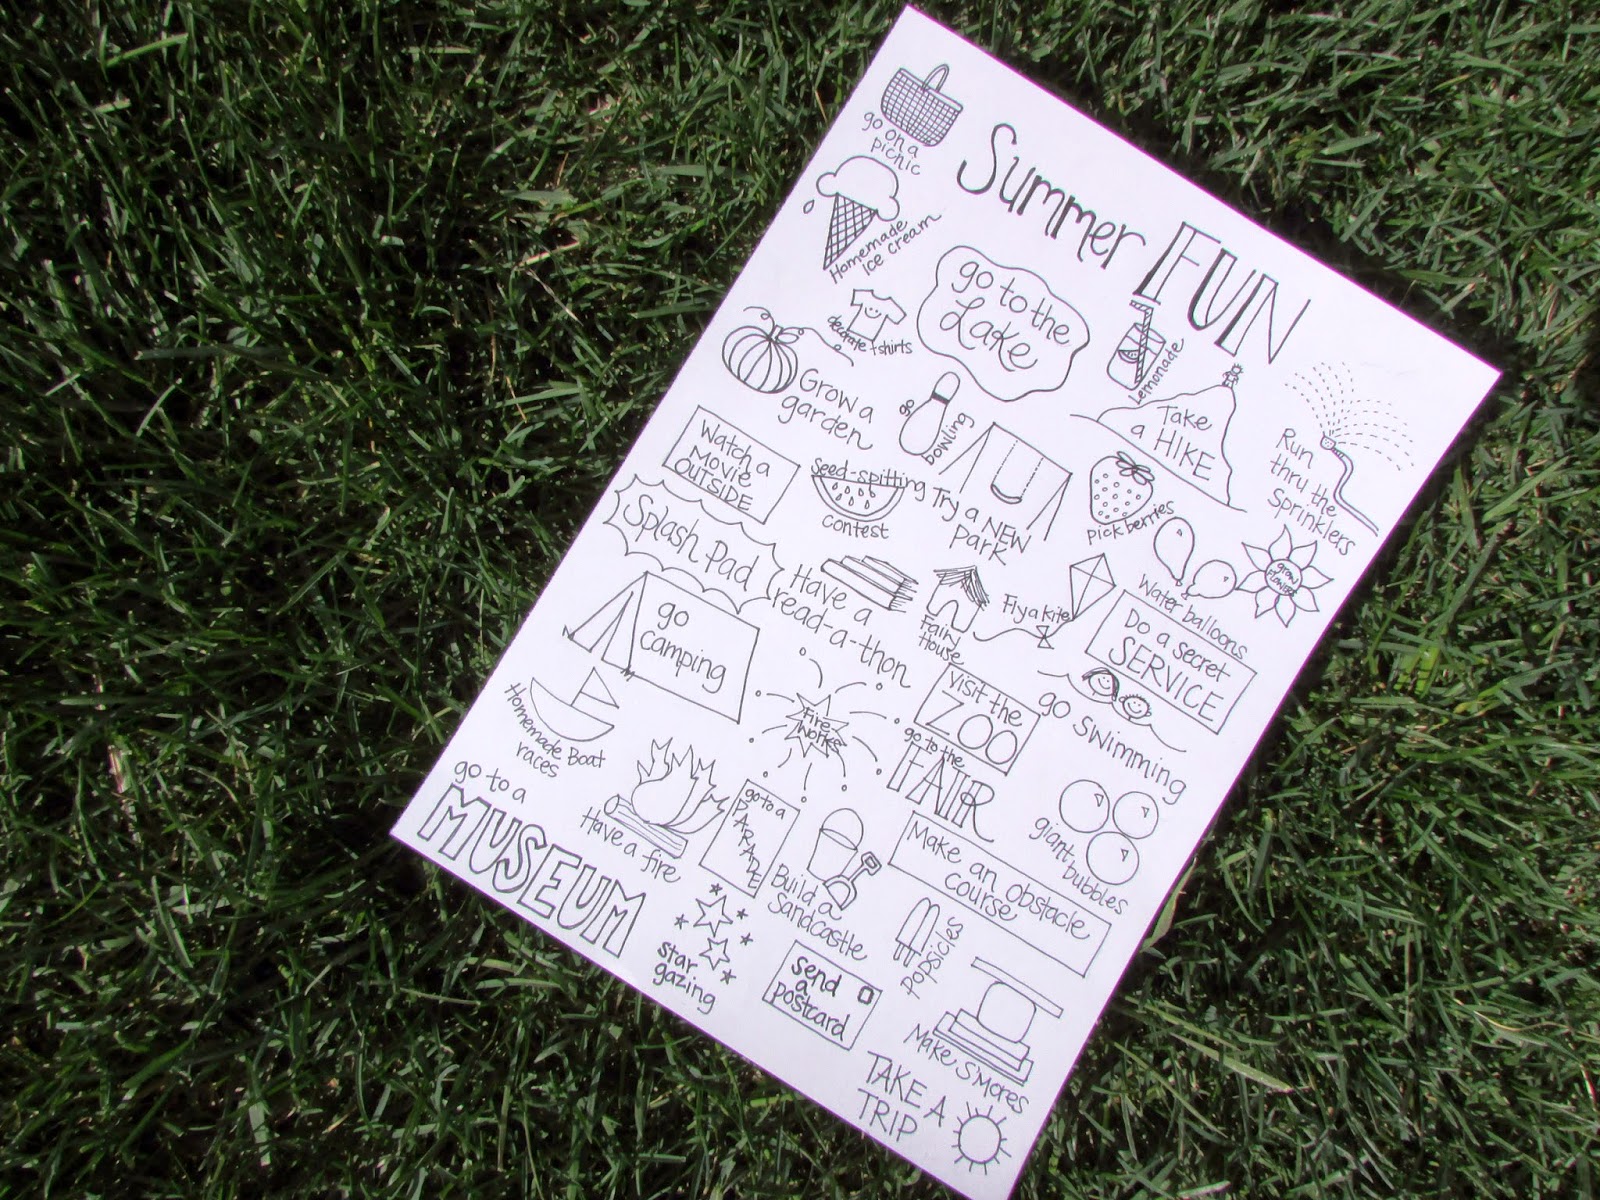 Summer FUN
go on a
picnic
Homemade
ice cream
go to the
Lake
decorate t-shirts
Lemonade
Grow a
garden
go
bowling
Take
a HIKE
Run
thru the
Sprinklers
Watch a
MOVIE
OUTSIDE
Seed-spitting
contest
Try a NEW
Park
pick berries
Splash Pad
Have a
read-a-thon
Fairy
House
Fly a kite
Water balloons
grow
flowers
go
camping
Do a secret
SERVICE
Homemade Boat
races
Fire
works
visit the
ZOO
go swimming
go to the
FAIR
go to a
MUSEUM
Have a fire
go to a
PARADE
Build a
Sandcastle
Make an obstacle
course
giant
bubbles
star
gazing
send
a
postcard
popsicles
Make S'mores
TAKE A
TRIP